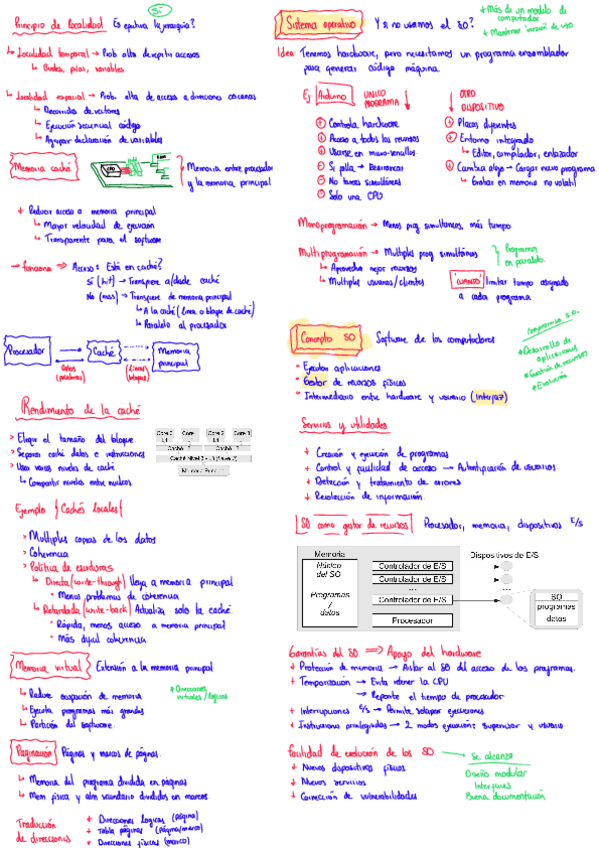 Sí
Principio de localidad Es efectiva la jerarquía?
↳ Localidad temporal → Prob alta de repetir accesos
↳ Bucles, pilas, variables
↳ Localidad espacial → Prob. alta de acceso a direcciones cercanas
↳ Recorridos de vectores
↳ Ejecución secuencial código
↳ Agrupar declaración de variables
Memoria caché
Memoria entre procesador
y la memoria principal
+ Reducir acceso a memoria principal
↳ Mayor velocidad de ejecución
↳ Transparente para el software
→ funciona ⇒ Acceso: Está en caché?
Sí (hit) → Transfiere a/desde caché
No (miss) → Transfiere de memoria principal
↳ A la caché (línea o bloque de caché)
↳ Paralelo al procesador
Procesador
Caché
Memoria
principal
Datos
(palabras)
(Líneas)
bloques
Rendimiento de la caché
> Elegir el tamaño del bloque
> Separar caché datos e instrucciones
> Usar varios niveles de caché
↳ Compartir niveles entre núcleos
Ejemplo {Cachés locales}
> Múltiples copias de los datos
> Coherencia
> Política de escrituras
↳ Directa (write-through) Llega a memoria principal
• Menos problemas de coherencia
↳ Retardada (write-back) Actualiza solo la caché
• Rápida, menos acceso a memoria principal
• Más difícil coherencia.
Memoria virtual Extensión a la memoria principal
↳ Reduce ocupación de memoria
↳ Ejecuta programas más grandes
↳ Partición del software.
* Direcciones
virtuales/lógicas
Paginación Páginas y marcos de páginas.
↳ Memoria del programa dividida en páginas
↳ Mem física y alm secundario divididos en marcos
Traducción
de direcciones
+ Direcciones lógicas (página)
+ Tabla páginas (página/marco)
+ Direcciones físicas (marco)
Sistema operativo Y si no usamos el SO?
+ Más de un modelo de
computador
+ Mantener versión de uso
Idea: Tenemos hardware, pero necesitamos un programa ensamblador
para generar código máquina.
Ej Arduino
UNICO
PROGRAMA
OTRO
DISPOSITIVO
+ Controla hardware
+ Acceso a todos los recursos
+ Usarse en micro-sencillos
- Si falla → Reiniciar
- No tareas simultáneas
- Solo una CPU
+ Placas diferentes
+ Entorno integrado
↳ Editor, compilador, enlazador
+ Cambia algo → Cargar nuevo programa
↳ Grabar en memoria no volátil
Monoprogramación → Menos prog simultáneos, más tiempo
Multiprogramación → Múltiples prog simultáneos
↳ Aprovecha mejor recursos
↳ Múltiples usuarios/clientes
Programas
en paralelo
'cuanto' limitar tiempo asignado
a cada programa
Concepto SO Software de los computadores
• Ejecutar aplicaciones
• Gestor de recursos físicos
• Intermediario entre hardware y usuario (Interfaz)
Compromiso S.O.
• Desarrollo de
aplicaciones
• Gestión de recursos
• Evolución
Servicios y utilidades
+ Creación y ejecución de programas
+ Control y facilidad de acceso → Autentificación de usuarios
+ Detección y tratamiento de errores
+ Recolección de información
SO como gestor de recursos Procesador, memoria, dispositivos E/S
Memoria
Núcleo
del SO
Programas
y
datos
Controlador de E/S
Controlador de E/S
...
Controlador de E/S
Procesador
Dispositivos de E/S
SO
programas
datos
Garantías del SO ⇒ Apoyo del hardware
+ Protección de memoria → Aislar al SO del acceso de los programas.
+ Temporización → Evita retener la CPU
→ Reparte el tiempo de procesador
+ Interrupciones E/S → Permite solapar ejecuciones
+ Instrucciones privilegiadas → 2 modos ejecución: supervisor y usuario
Facilidad de evolución de los SO
+ Nuevos dispositivos físicos
+ Nuevos servicios
+ Corrección de vulnerabilidades
Se alcanza
Diseño modular
Interfaces
Buena documentación